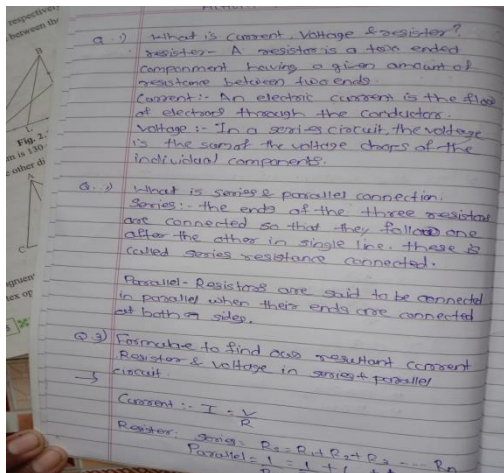 respective
between th
B
Fig. 2.
m is 130
other di
C
gruen
tex op
Q.1) What is current, voltage & resister?
resister - A resistor is a two ended
componment having a given amount of
resistance between two ends.
Current :- An electric current is the flow
of electrons through the conductor.
Voltage :- In a series circuit, the voltage
is the sum of the voltage drops of the
individual components.
What is series & parallel connection.
Series :- the ends of the three resistors
are connected so that they follow one
after the other in single line. these is
called series resistance connected.
Parallel - Resistors are said to be connected
in parallel when their ends are connected
at both sides.
Q 3) Formulae to find out resultant current
Resistor & voltage in series & parallel
circuit.
→
Current :- I = V/R
Resistor: series = Rs = R1 + R2 + R3 ---- Rn
Parallel = 1/R = 1 + 1